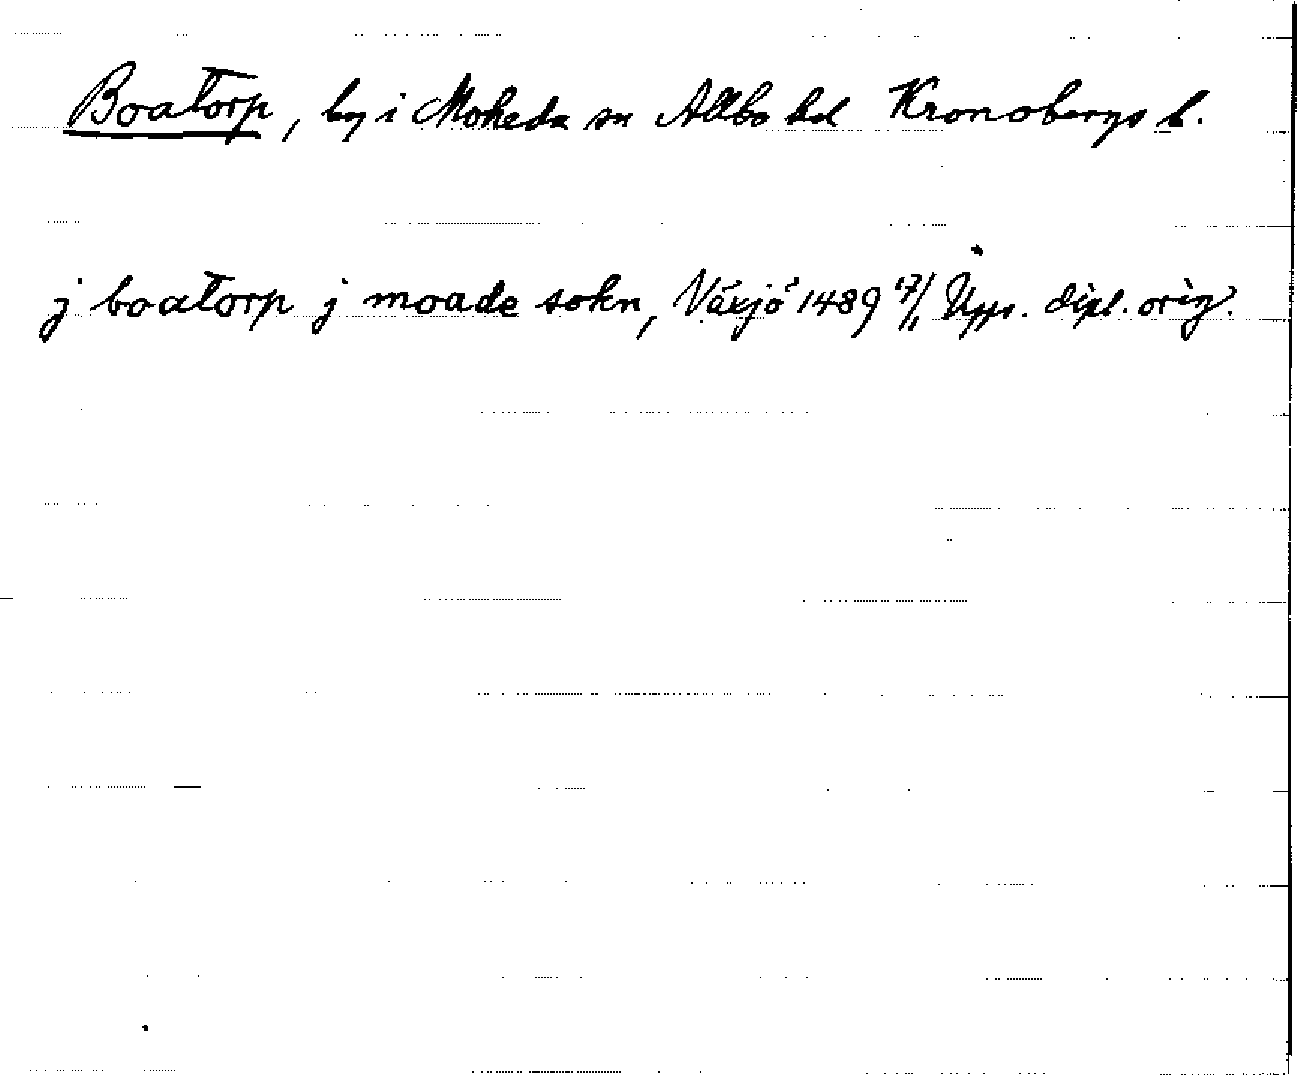 Boatorp, by i Moheda sn Allbo hd Kronobergs l.
j boatorp j moade sokn, Växjö 1489 17/11 Upps. dipl. orig.